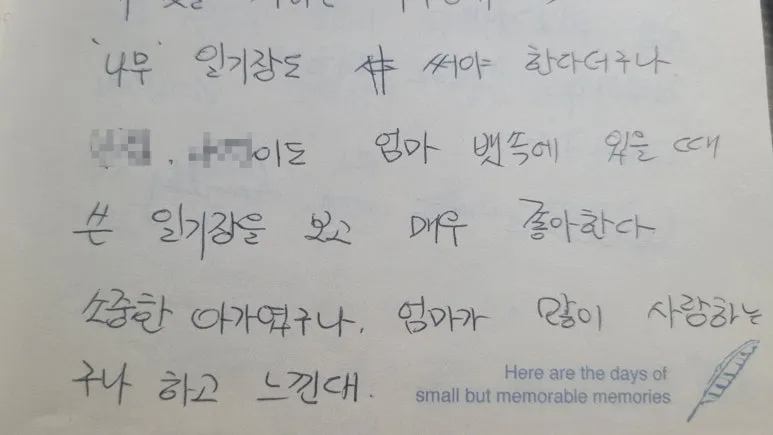 '나무' 일기장도 써야 한다더구나
이도 엄마 뱃속에 있을 때
쓴 일기장을 보고 매우 좋아한다
소중한 아가였구나. 엄마가 많이 사랑하는
구나 하고 느낀대.
Here are the days of
small but memorable memories